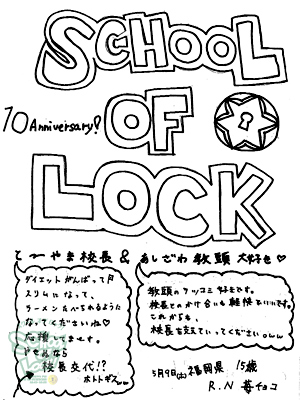 SCHOOL
OF
10 Anniversary!
LOCK
とーやま校長 & あしざわ教頭 大好き♡
ダイエットがんばって
スリムになって、
ラーメンたべられるように
なってくださいね♡
応援してます。
校長交代!?
ホトトギスww
教頭のツッコミ好きです。
校長とのかけ合いも軽快でいいです。
これからも、
校長を支えていってくださいwww
5月9日(火) 福岡県 15歳
R.N 苺チョコ